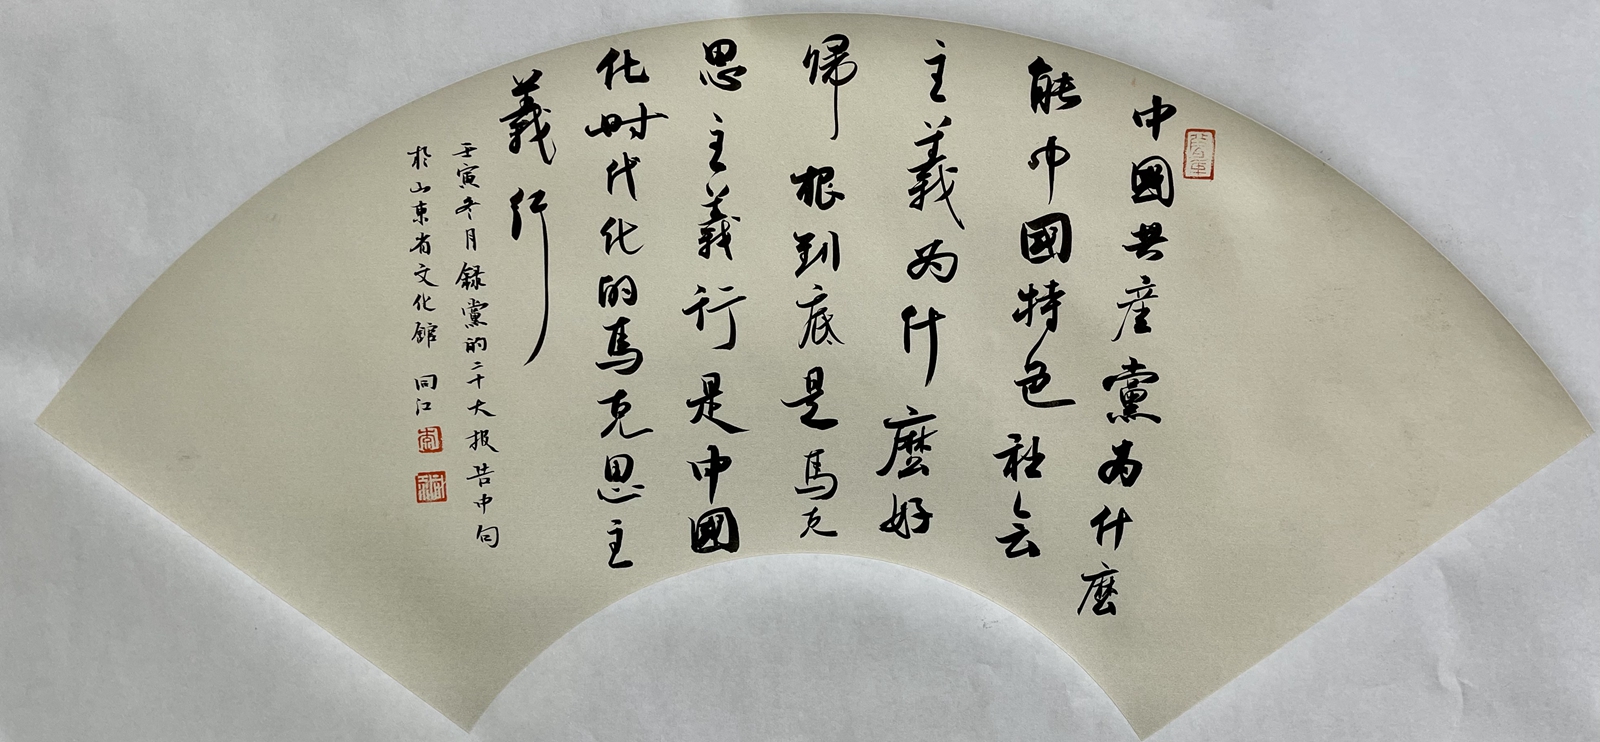 中國共產黨为什麼
能中國特色社会
主義为什麼好
歸根到底是馬克
思主義行是中國
化时代化的馬克思主
義行
壬寅冬月録黨的二十大报告中句
於山東省文化館 同江